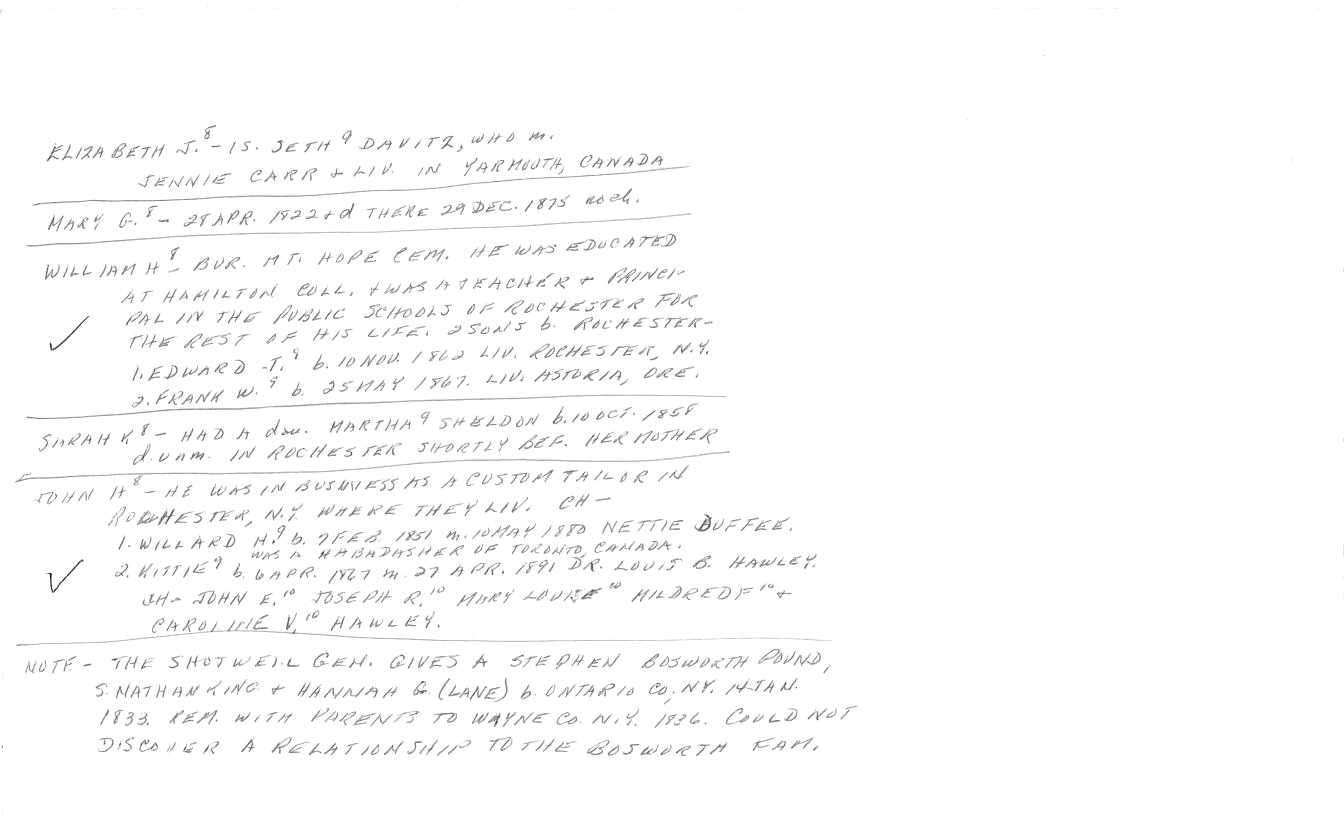 ELIZABETH J.⁸ – 1 S. SETH⁹ DAVITZ, WHO m.
JENNIE CARR + LIV. IN YARMOUTH, CANADA
MARY G.⁸ – 28 APR. 1822 + d THERE 29 DEC. 1875 Roch.
WILLIAM H⁸ – BUR. MT. HOPE CEM. HE WAS EDUCATED
AT HAMILTON COLL. + WAS A TEACHER + PRINCI-
PAL IN THE PUBLIC SCHOOLS OF ROCHESTER FOR
THE REST OF HIS LIFE. 2 SONS b. ROCHESTER –
1. EDWARD T.⁹ b. 10 NOV. 1862 LIV. ROCHESTER, N.Y.
2. FRANK W.⁹ b. 25 MAY 1867. LIV. ASTORIA, ORE.
SARAH K⁸ – HAD A dau. MARTHA⁹ SHELDON b. 10 OCT. 1858
d. unm. IN ROCHESTER SHORTLY BEF. HER MOTHER
JOHN H⁸ – HE WAS IN BUSINESS AS A CUSTOM TAILOR IN
ROCHESTER, N.Y. WHERE THEY LIV. CH –
1. WILLARD H.⁹ b. 7 FEB. 1851 m. 10 MAY 1880 NETTIE DUFFEE.
WAS A HABADASHER OF TORONTO, CANADA.
2. KITTIE⁹ b. 6 APR. 1867 m. 27 APR. 1891 DR. LOUIS B. HAWLEY.
CH – JOHN E.¹⁰ JOSEPH R.¹⁰ MARY LOUISE¹⁰ MILDRED F¹⁰ +
CAROLINE V.¹⁰ HAWLEY.
NOTE – THE SHOTWELL GEN. GIVES A STEPHEN BOSWORTH POUND,
S. NATHAN KING + HANNAH G. (LANE) b. ONTARIO CO, NY. 14 JAN.
1833. REM. WITH PARENTS TO WAYNE CO. N.Y. 1836. COULD NOT
DISCOVER A RELATIONSHIP TO THE BOSWORTH FAM.